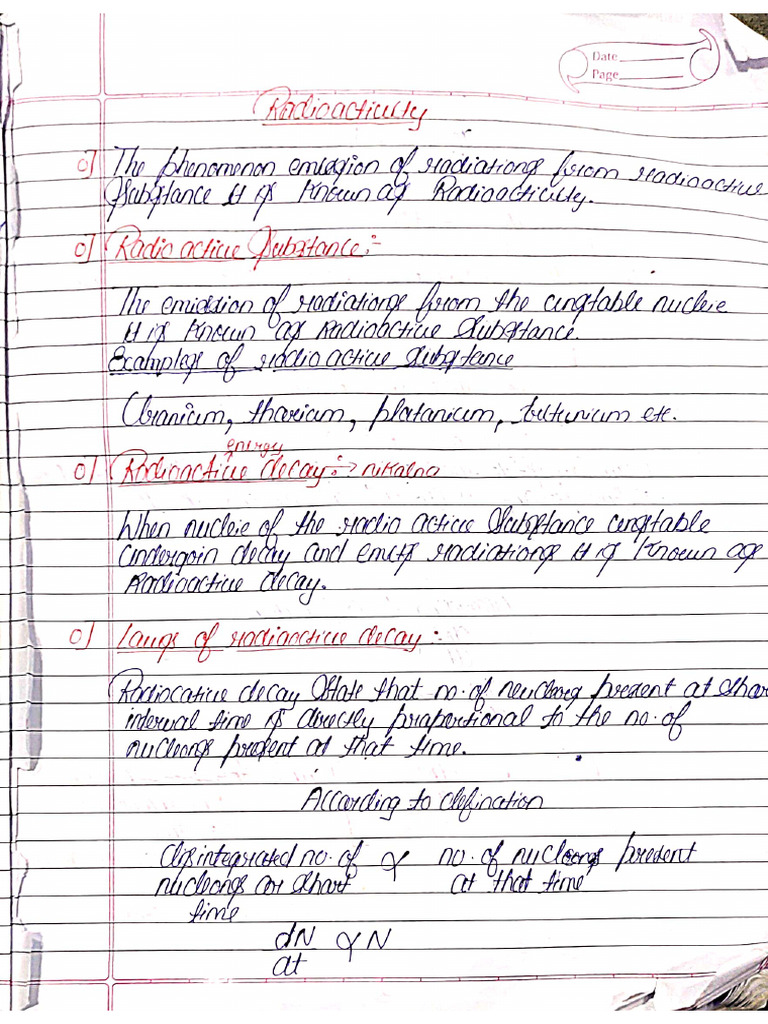 Date
Page
Radioactivity
o] The phenomenon emission of radiations from radioactive
Substance it is known as Radioactivity.
o] Radio active Substance:-
The emission of radiations from the unstable nucleie
it is known as Radioactive Substance.
Examples of radio active substance
Uranium, tharium, platanium, etc.
energy
o] Radioactive decay:-> nikalna
When nucleie of the radio active Substance unstable
undergoin decay and emits radiations it is known as
Radioactive decay.
o] Laws of radioactive decay:-
Radiocative decay State that no. of present at shar
interval time is directly prapartional to the no. of
nucleons present at that time.
According to defination
disintegrated no. of ∝ no. of nucleons present
nucleons or shart at that time
time
dN ∝ N
dt